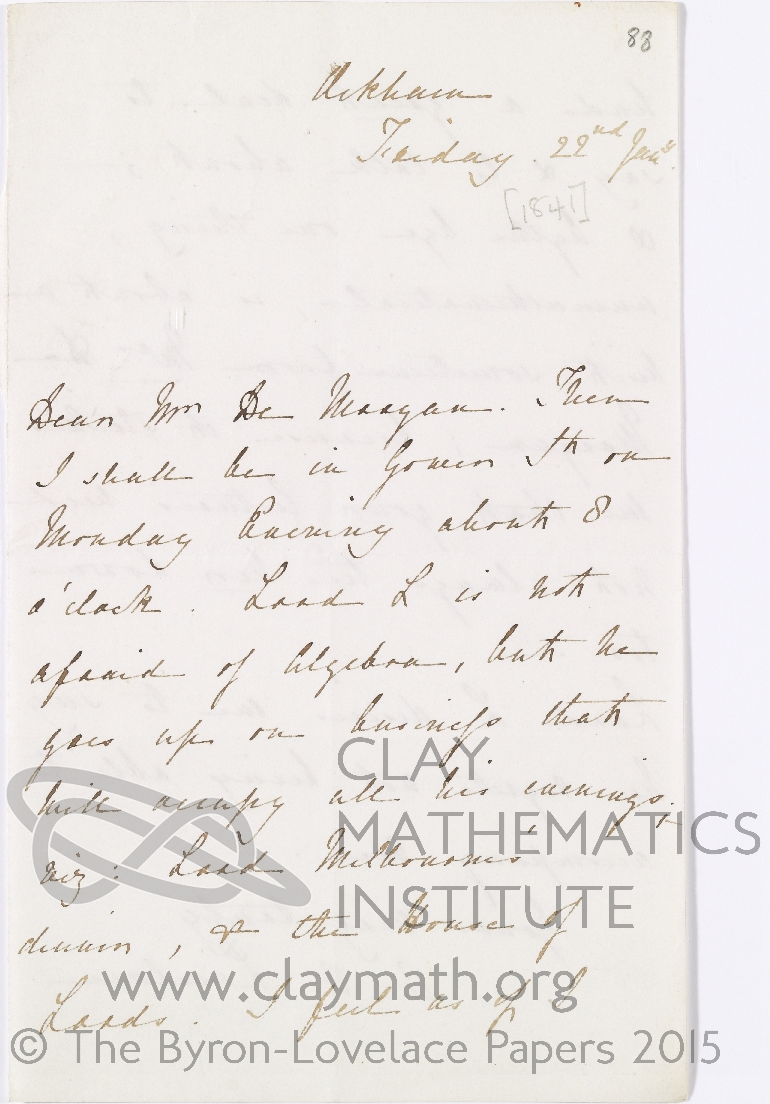 88
Ockham
Friday. 22nd Jany
[1841]
Dear Mr De Morgan. Then
I shall be in Gower St on
Monday Evening about 8
o'clock. Lord L is not
afraid of Algebra, but he
goes up on business that
will occupy all his evenings,
viz: Lord Melbourne's
dinner, & the House of
Lords. I feel as if I
CLAY
MATHEMATICS
INSTITUTE
www.claymath.org
© The Byron-Lovelace Papers 2015